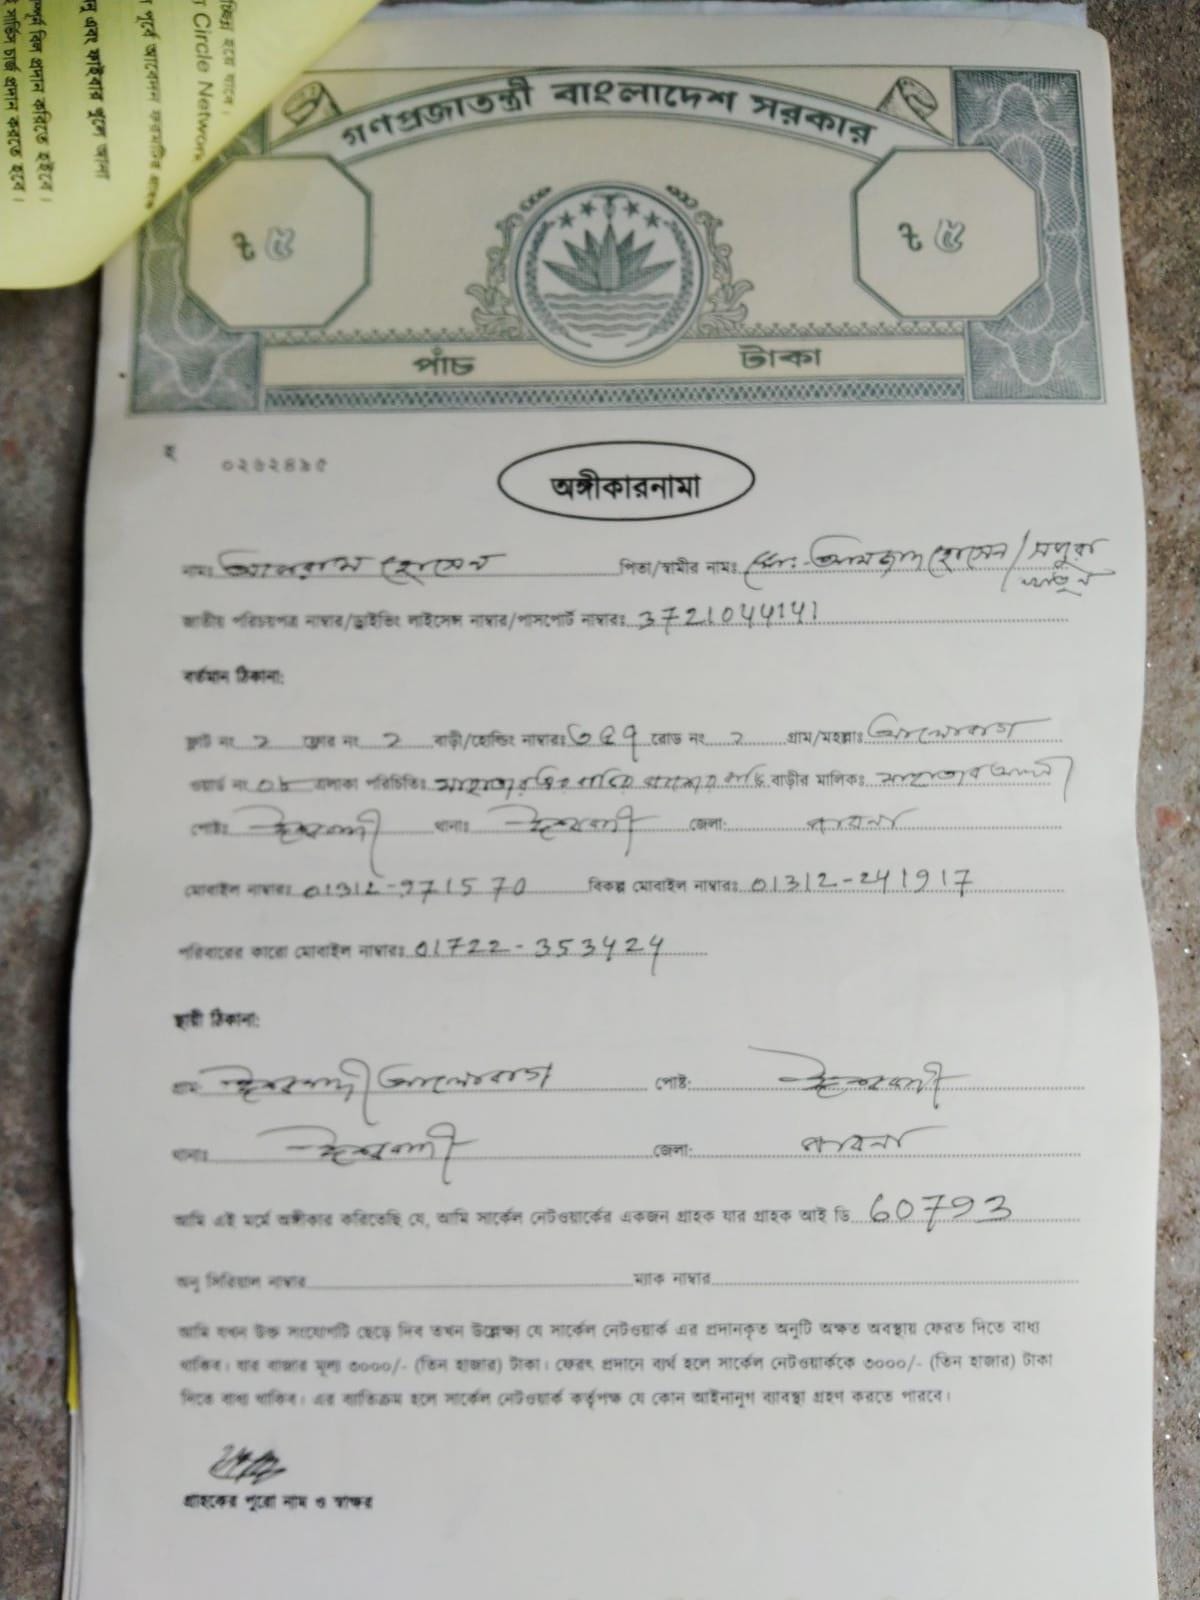 চ্ছিন্ন হয়ে যাবে।
Circle Network
পূর্বে আবেদন ফরমটির
এবং ফাইবার খুলে আনা
বিল প্রদান করিতে হইবে।
সার্ভিস চার্জ প্রদান করতে হবে।
গণপ্রজাতন্ত্রী বাংলাদেশ সরকার
৳ ৫ ৳ ৫
পাঁচ টাকা
অঙ্গীকারনামা
নামঃ হোসেন পিতা/স্বামীর নামঃ মোঃ আমজাদ হোসেন / খাতুন
জাতীয় পরিচয়পত্র নাম্বার/ড্রাইভিং লাইসেন্স নাম্বার/পাসপোর্ট নাম্বারঃ 3721044141
বর্তমান ঠিকানা:
ফ্লাট নং ২ ফ্লোর নং ২ বাড়ী/হোল্ডিং নাম্বারঃ রোড নং ২ গ্রাম/মহল্লাঃ আলোবাগ
ওয়ার্ড নং ০৮ এলাকা পরিচিতিঃ বাড়ীর মালিকঃ
পোষ্টঃ ঈশ্বরদী থানাঃ ঈশ্বরদী জেলা: পাবনা
মোবাইল নাম্বারঃ 01312-971570 বিকল্প মোবাইল নাম্বারঃ 01312-241917
পরিবারের কারো মোবাইল নাম্বারঃ 01722-353424
স্থায়ী ঠিকানা:
গ্রামঃ ঈশ্বরদী আলোবাগ পোষ্ট: ঈশ্বরদী
থানাঃ ঈশ্বরদী জেলা: পাবনা
আমি এই মর্মে অঙ্গীকার করিতেছি যে, আমি সার্কেল নেটওয়ার্কের একজন গ্রাহক যার গ্রাহক আই ডি 60793
অনু সিরিয়াল নাম্বার ম্যাক নাম্বার
আমি যখন উক্ত সংযোগটি ছেড়ে দিব তখন উল্লেক্ষ্য যে সার্কেল নেটওয়ার্ক এর প্রদানকৃত অনুটি অক্ষত অবস্থায় ফেরত দিতে বাধ্য
থাকিব। যার বাজার মূল্য ৩০০০/- (তিন হাজার) টাকা। ফেরৎ প্রদানে ব্যর্থ হলে সার্কেল নেটওয়ার্ককে ৩০০০/- (তিন হাজার) টাকা
দিতে বাধ্য থাকিব। এর ব্যতিক্রম হলে সার্কেল নেটওয়ার্ক কর্তৃপক্ষ যে কোন আইনানুগ ব্যাবস্থা গ্রহণ করতে পারবে।
গ্রাহকের পুরো নাম ও স্বাক্ষর